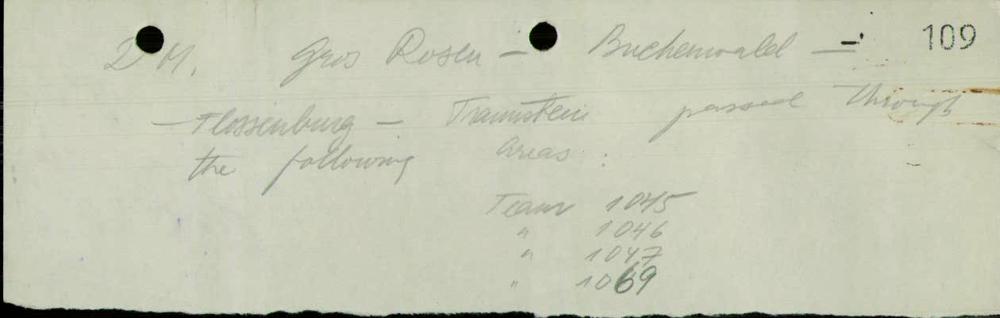 D M. Gros Rosen – Buchenwald – 109
– Flossenburg – Traunstein passed through
the following areas :
Team 1045
" 1046
" 1047
" 1069